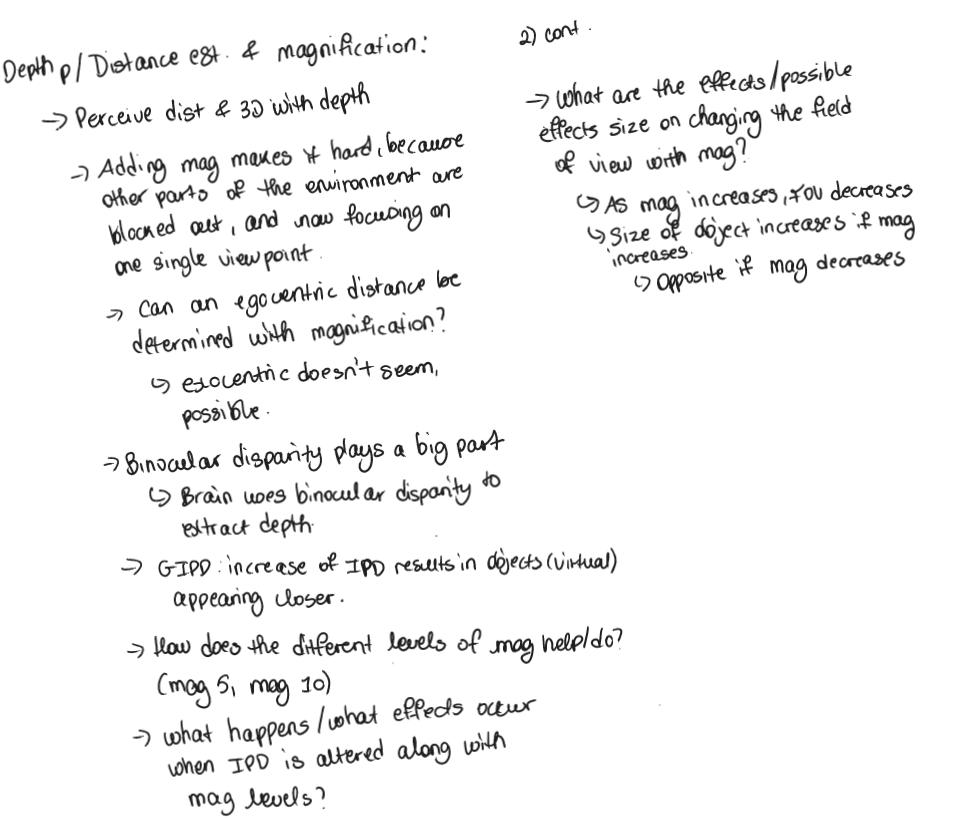 Depth p/Distance est. & magnification:
→ Perceive dist & 3D with depth
→ Adding mag makes it hard, because
other parts of the environment are
blocked out, and now focusing on
one single viewpoint.
→ Can an egocentric distance be
determined with magnification?
↳ exocentric doesn't seem,
possible.
→ Binocular disparity plays a big part
↳ Brain uses binocular disparity to
extract depth.
→ GIPD: increase of IPD results in objects (virtual)
appearing closer.
→ How does the different levels of mag help/do?
(mag 5, mag 10)
→ what happens/what effects occur
when IPD is altered along with
mag levels?
2) cont.
→ What are the effects/possible
effects size on changing the field
of view with mag?
↳ As mag increases, FOV decreases
↳ Size of object increases if mag
increases.
↳ Opposite if mag decreases